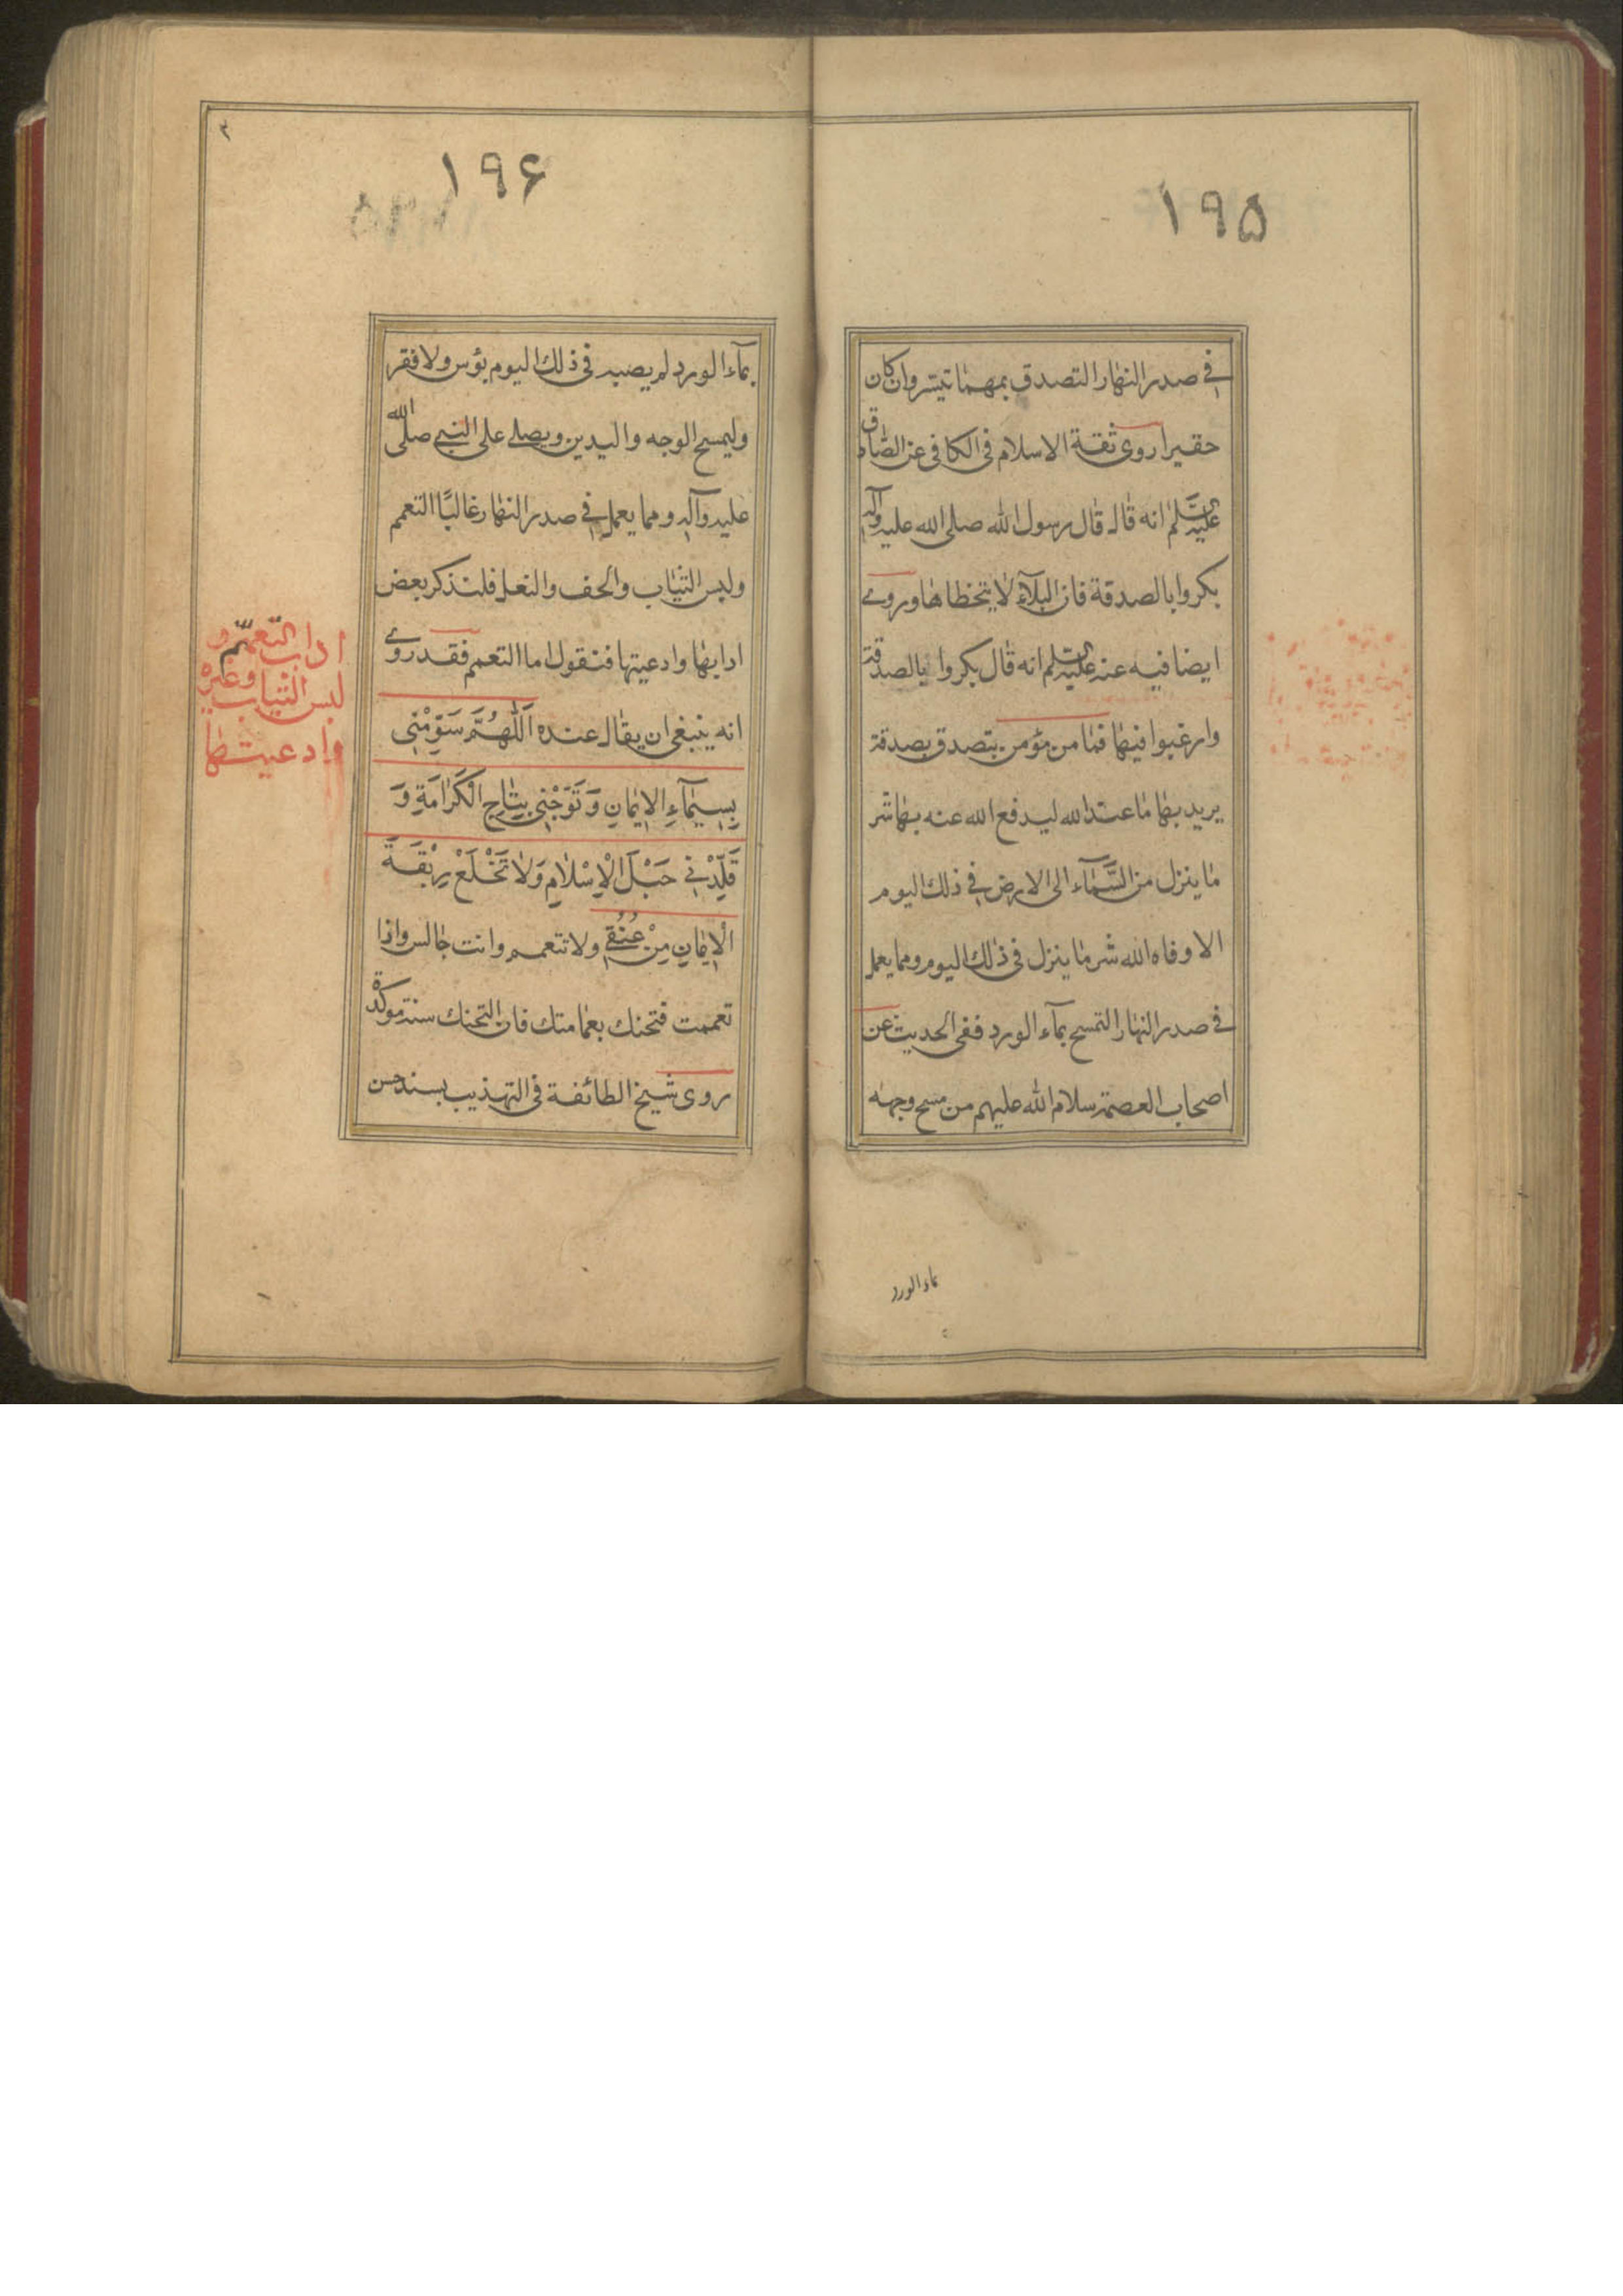 ١٩۵
في صدر النهار التصدق بمهما تيسر وان كان
حقيرا روى ثقة الاسلام في الكافي عن الصادق
عليه السلم انه قال قال رسول الله صلى الله عليه وآله
بكروا بالصدقة فان البلآء لا يتخطاها وروى
ايضا فيه عنه عليه السلم انه قال بكروا بالصدقة
وارغبوا فيها فما من مؤمن يتصدق بصدقة
يريد بها ما عند الله ليدفع الله عنه بها شر
ما ينزل من السَّمآء الى الارض في ذلك اليوم
الا وقاه الله شر ما ينزل في ذلك اليوم ومما يعمل
في صدر النهار التمسح بمآء الورد ففى الحديث عن
اصحاب العصمة سلام الله عليهم من مسح وجهه
بماء الورد
١٩۶
بمآء الورد لم يصبه في ذلك اليوم بؤس ولا فقر
وليمسح الوجه واليدين ويصلى على النبي صلى الله
عليه وآله ومما يعمل في صدر النهار غالبًا التعمم
ولبس الثياب والخف والنعل فلنذكر بعض
ادابها وادعيتها فنقول اما التعمم فقد روى
انه ينبغى ان يقال عنده اَللّٰهُمَّ سَوِّمْنِى
بِسِيمَآءِ الاِيمَانِ وَتَوِّجْنِى بِتَاجِ الْكَرَامَةِ وَ
قَلِّدْنِي حَبْلَ الْاِسْلَامِ وَلَا تَخْلَعْ رِبْقَةَ
الْاِيمَانِ مِنْ عُنُقِي ولا تتعمم وانت جالس واذا
تعممت فتحنك بعمامتك فان التحنك سنة موكدة
روى شيخ الطائفة في التهذيب بسند حسن
اداب التّعمّم و
لبس الثياب وغيره
وادعيتها